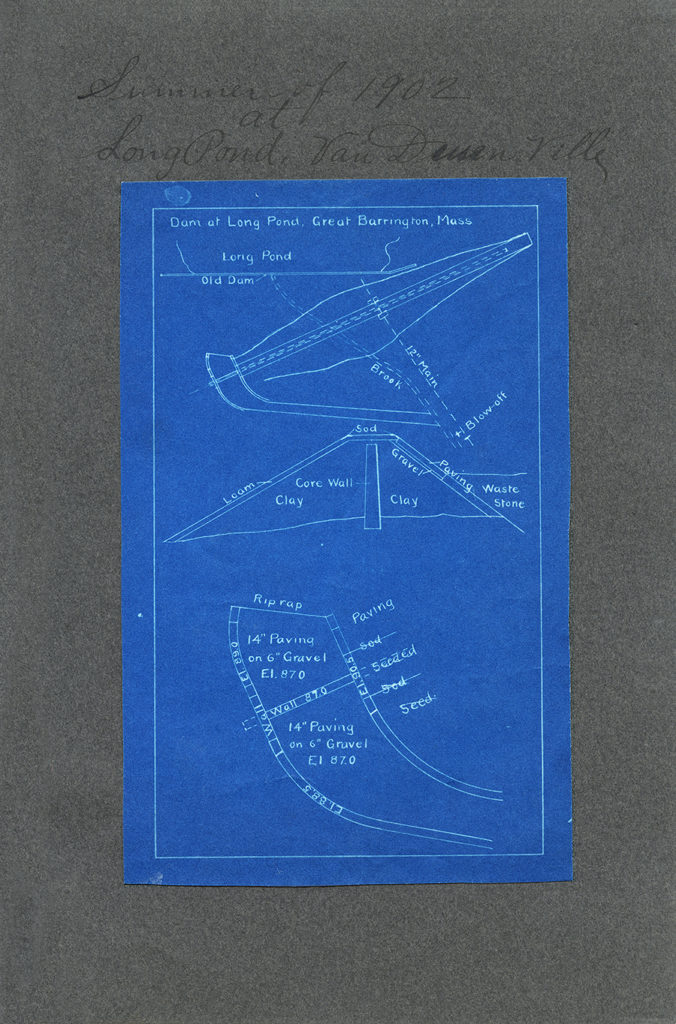 Summer of 1902
at
Long Pond, Van Deusen Ville
Dam at Long Pond, Great Barrington, Mass
Long Pond
Old Dam
12" Main
Brook
Blow-off
Sod
Gravel
Paving
Loam
Core Wall
Clay
Clay
Waste
Stone
Rip rap
Paving
14" Paving
on 6" Gravel
El. 87.0
Sod
Seeded
Sod
Seed
El 89.0
El. 90.5
Wall 87.0
Wall
14" Paving
on 6" Gravel
El 87.0
El 88.5